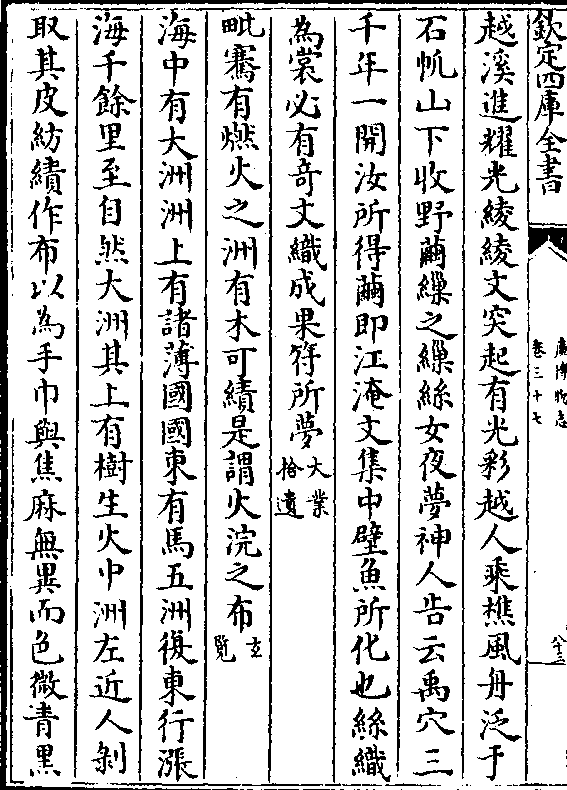 欽定四庫全書
廣博物志
卷三十七
越溪進耀光綾綾文突起有光彩越人乘樵風舟泛于
石帆山下收野繭繅之繅絲女夜夢神人告云禹穴三
千年一開汝所得繭即江淹文集中壁魚所化也絲織
為裳必有奇文織成果符所夢大業拾遺
毗騫有燃火之洲有木可績是謂火浣之布玄覽
海中有大洲洲上有諸薄國國東有馬五洲復東行漲
海千餘里至自然大洲其上有樹生火中洲左近人剝
取其皮紡績作布以為手巾與焦麻無異而色微青黑